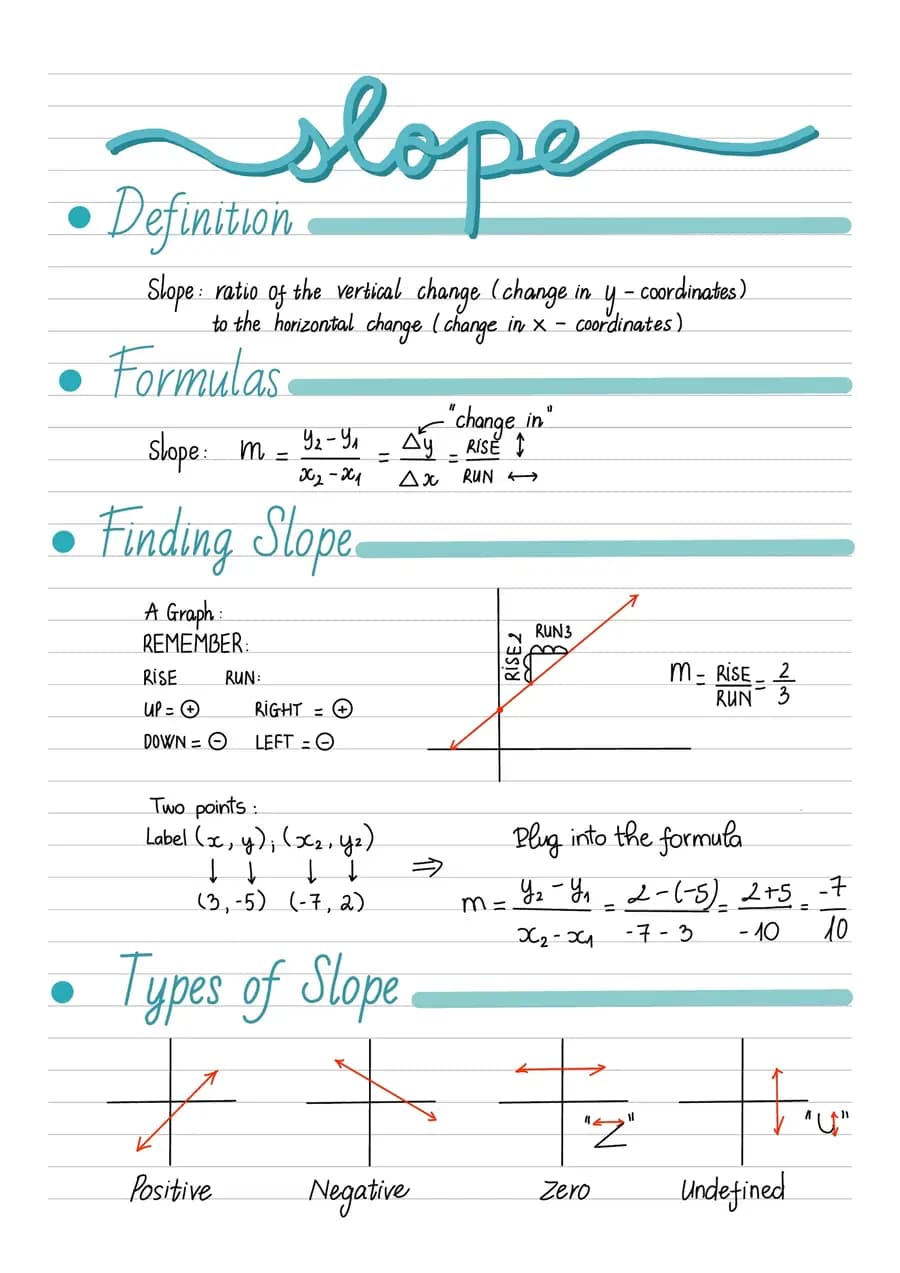 slope
Definition
Slope: ratio of the vertical change (change in y - coordinates)
to the horizontal change (change in x - coordinates)
Formulas
"change in"
Slope: m = y₂-y₁/x₂-x₁ = △y/△x = RISE ↕/RUN ↔
Finding Slope
A Graph:
REMEMBER:
RISE RUN:
UP = ⊕ RIGHT = ⊕
DOWN = ⊖ LEFT = ⊖
RISE 2
RUN 3
m = RISE/RUN = 2/3
Two points:
Label (x, y); (x₂, y₂)
↓ ↓ ↓ ↓
(3, -5) (-7, 2)
⇒
Plug into the formula
m = y₂-y₁/x₂-x₁ = 2-(-5)/-7-3 = 2+5/-10 = -7/10
Types of Slope
"Z"
"U"
Positive Negative Zero Undefined